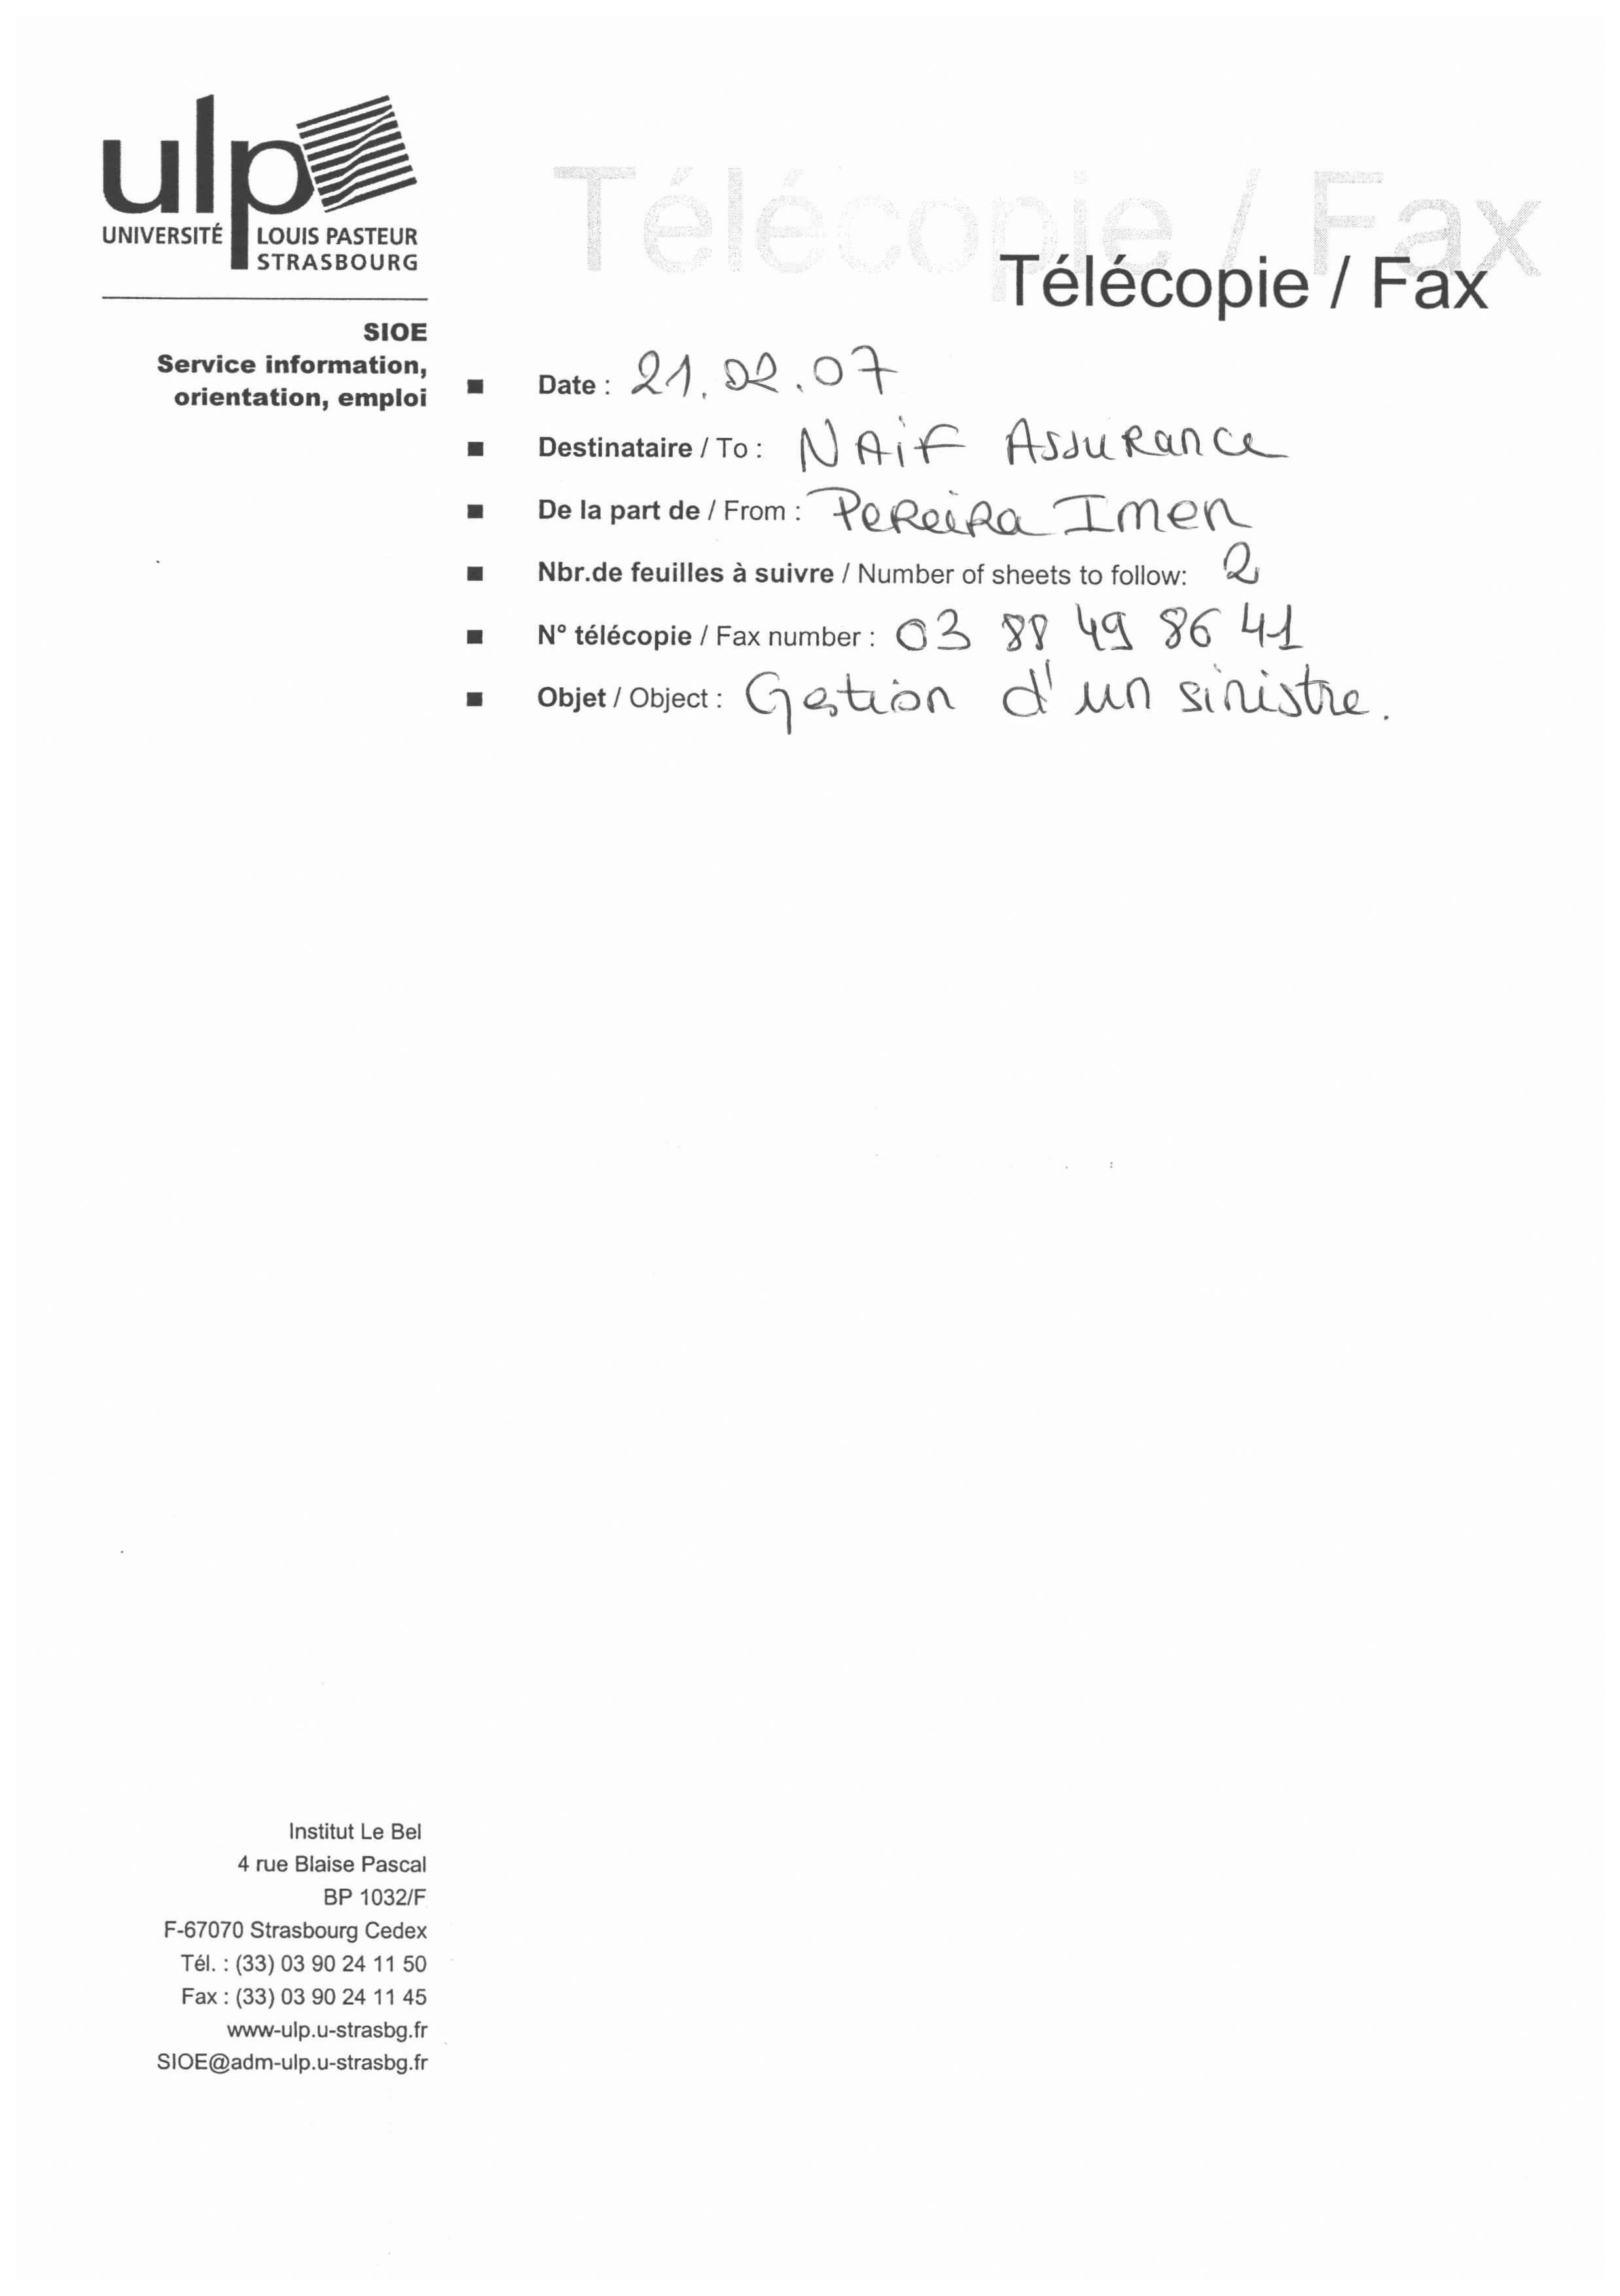 ulp
UNIVERSITÉ LOUIS PASTEUR
STRASBOURG
Télécopie / Fax
Télécopie / Fax
SIOE
Service information,
orientation, emploi
Date : 21.02.07
Destinataire / To : NAiF Assurance
De la part de / From : Pereira Imen
Nbr.de feuilles à suivre / Number of sheets to follow: 2
N° télécopie / Fax number : 03 88 49 86 41
Objet / Object : Gestion d'un sinistre.
Institut Le Bel
4 rue Blaise Pascal
BP 1032/F
F-67070 Strasbourg Cedex
Tél. : (33) 03 90 24 11 50
Fax : (33) 03 90 24 11 45
www-ulp.u-strasbg.fr
SIOE@adm-ulp.u-strasbg.fr